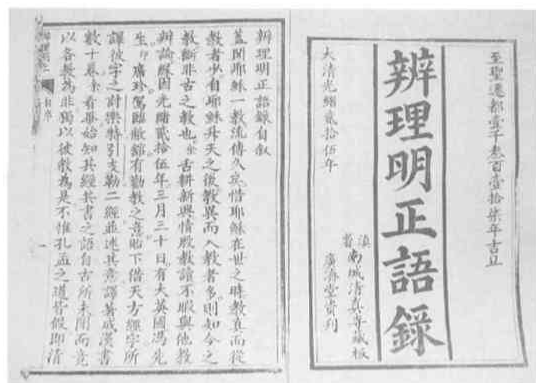 至聖遷都壹千叁百壹拾柒年吉立
辨理明正語錄
滇省南城清真寺藏板
廣濟堂寶刊
大清光緒貳拾伍年
辨理明正語錄自叙
蓋聞耶穌一教流傳久矣惜耶穌在世之時教真而從
教者少自耶穌升天之後教異而入教者多則知今之
教斷非古之教也余舌耕新興情殷教讀不暇與他教
辨論緣因光緒貳拾伍年三月三十日有大英國馮先
生 廣珍駕臨敝館有勸教之意貽下借天方經字所
譯彼字之討喇特引支勒二經並述其意譯著成漢書
數十卷余看畢始知其經其書之語自古所未聞而竟
以各教為非獨以彼教為是不惟孔孟之道皆假即清
自序